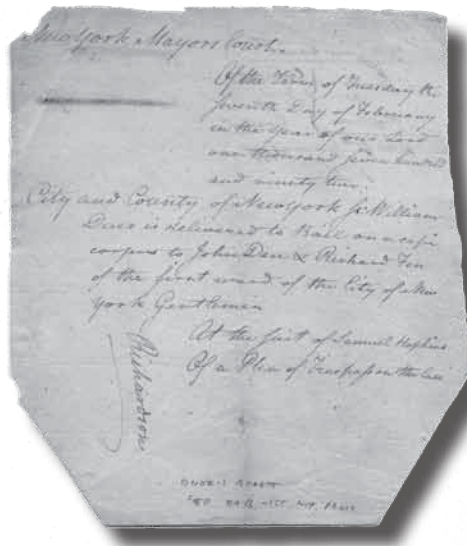 New York Mayors Court.
Of the Term of Tuesday the
seventh Day of February
in the Year of our Lord
one thousand seven hundred
and ninety two.
City and County of New York ss William
Duer is delivered to Bail on a cepi
corpus to John Den & Richard Fen
of the first ward of the City of New
York Gentlemen
At the suit of Samuel Hopkins
Of a Plea of Trespass on the Case
Richardson